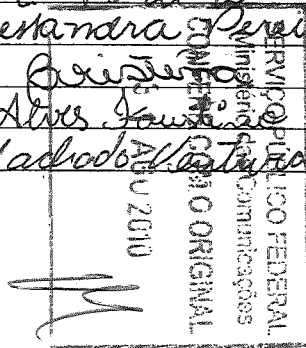 essandra Perei
Cristina
Alves Faustino
Machado Ventura
SERVIÇO PÚBLICO FEDERAL
Ministério das Comunicações
CONFERE COM O ORIGINAL
AGO 2010